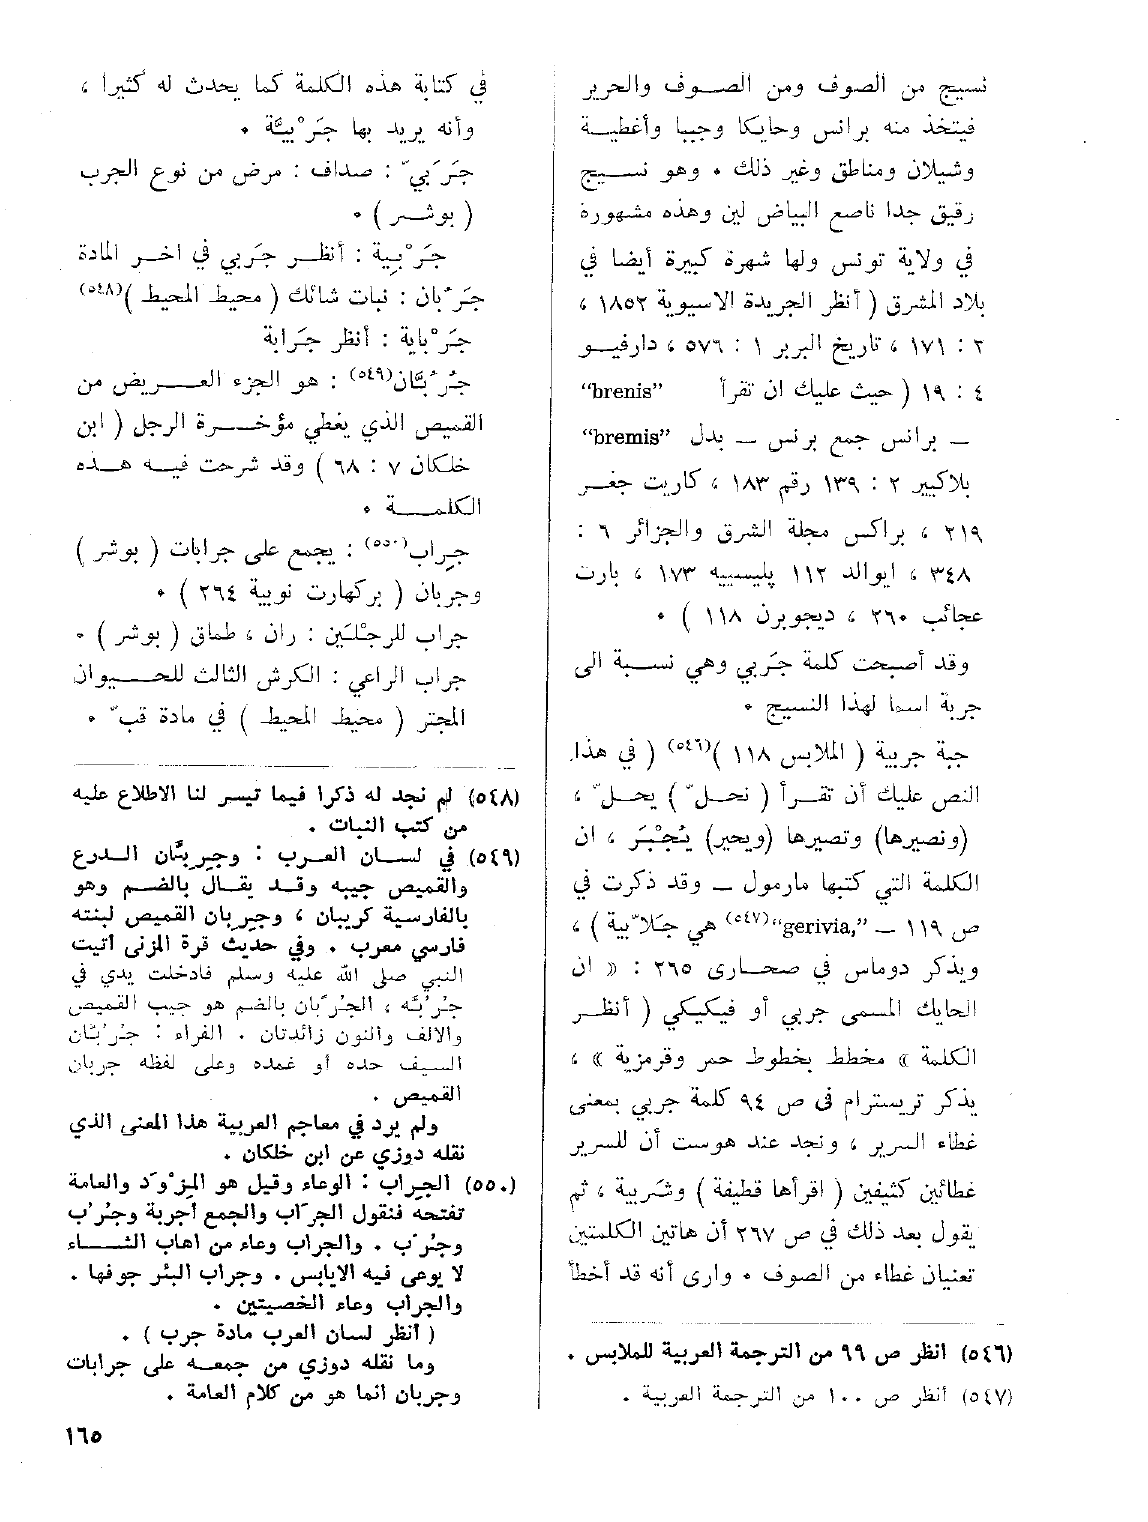 نسيج من الصوف ومن الصوف والحرير
فيتخذ منه برانس وحايكا وجببا وأغطية
وشيلان ومناطق وغير ذلك . وهو نسيج
رقيق جدا ناصع البياض لين وهذه مشهورة
في ولاية تونس ولها شهرة كبيرة أيضا في
بلاد المشرق ( أنظر الجريدة الاسيوية ١٨٥٢ ،
٢ : ١٧١ ، تاريخ البربر ١ : ٥٧٦ ، دارفيو
٤ : ١٩ ( حيث عليك ان تقرأ “brenis”
— برانس جمع برنس — بدل “bremis”
بلاكيير ٢ : ١٣٩ رقم ١٨٣ ، كاريت جغر
٢١٩ ، براكس مجلة الشرق والجزائر ٦ :
٣٤٨ ، ايوالد ١١٢ پليسييه ١٧٣ ، بارت
عجائب ٢٦٠ ، ديجوبرن ١١٨ ) .
وقد أصبحت كلمة جَربي وهي نسبة الى
جربة اسما لهذا النسيج .
جبة جربية ( الملابس ١١٨ )(٥٤٦) ( في هذا
النص عليك أن تقرأ ( نحل ّ ) يحل ّ ،
(ونصيرها) وتصيرها (ويحير) يُجْبَر ، ان
الكلمة التي كتبها مارمول — وقد ذكرت في
ص ١١٩ — “gerivia,”(٥٤٧) هي جَلا ّبية ) ،
ويذكر دوماس في صحارى ٢٦٥ : « ان
الحايك المسمى جربي أو فيكيكي ( أنظر
الكلمة » مخطط بخطوط حمر وقرمزية » ،
يذكر تريسترام في ص ٩٤ كلمة جربي بمعنى
غطاء السرير ، ونجد عند هوست أن للسرير
غطائين كثيفين ( اقرأها قطيفة ) وشربية ، ثم
يقول بعد ذلك في ص ٢٦٧ أن هاتين الكلمتين
تعنيان غطاء من الصوف . وارى أنه قد أخطأ
(٥٤٦) انظر ص ٩٩ من الترجمة العربية للملابس .
(٥٤٧) أنظر ص ١٠٠ من الترجمة العربية .
في كتابة هذه الكلمة كما يحدث له كثيرا ،
وأنه يريد بها جَرْبيَّة .
جَرَبيّ : صداف : مرض من نوع الجرب
( بوشر ) .
جَرْبية : أنظر جَربي في اخر المادة
جَرَبان : نبات شائك ( محيط المحيط )(٥٤٨)
جَرْباية : أنظر جَرابة
جُرُبّان(٥٤٩) : هو الجزء العريض من
القميص الذي يغطي مؤخرة الرجل ( ابن
خلكان ٧ : ٦٨ ) وقد شرحت فيه هذه
الكلمة .
جِراب(٥٥٠) : يجمع على جرابات ( بوشر )
وجربان ( بركهارت نوبية ٢٦٤ ) .
جراب للرجْلَين : ران ، طماق ( بوشر ) .
جراب الراعي : الكرش الثالث للحيوان
المجتر ( محيط المحيط ) في مادة قبّ .
(٥٤٨) لم نجد له ذكرا فيما تيسر لنا الاطلاع عليه
من كتب النبات .
(٥٤٩) في لسان العرب : وجِرِبَّان الدرع
والقميص جيبه وقد يقال بالضم وهو
بالفارسية كريبان ، وجِرِبان القميص لبنته
فارسي معرب . وفي حديث قرة المزنى أتيت
النبي صلى الله عليه وسلم فادخلت يدي في
جُرُبّانه ، الجُرُبّان بالضم هو جيب القميص
والالف والنون زائدتان . الفراء : جُرُبّان
السيف حده أو غمده وعلى لفظه جربان
القميص .
ولم يرد في معاجم العربية هذا المعنى الذي
نقله دوزي عن ابن خلكان .
(٥٥٠) الجِراب : الوعاء وقيل هو المِزْوَد والعامة
تفتحه فتقول الجَراب والجمع أجربة وجُرُب
وجُرْب . والجراب وعاء من اهاب الشاء
لا يوعى فيه الا يابس . وجراب البئر جوفها .
والجراب وعاء الخصيتين .
( أنظر لسان العرب مادة جرب ) .
وما نقله دوزي من جمعه على جرابات
وجربان انما هو من كلام العامة .
١٦٥